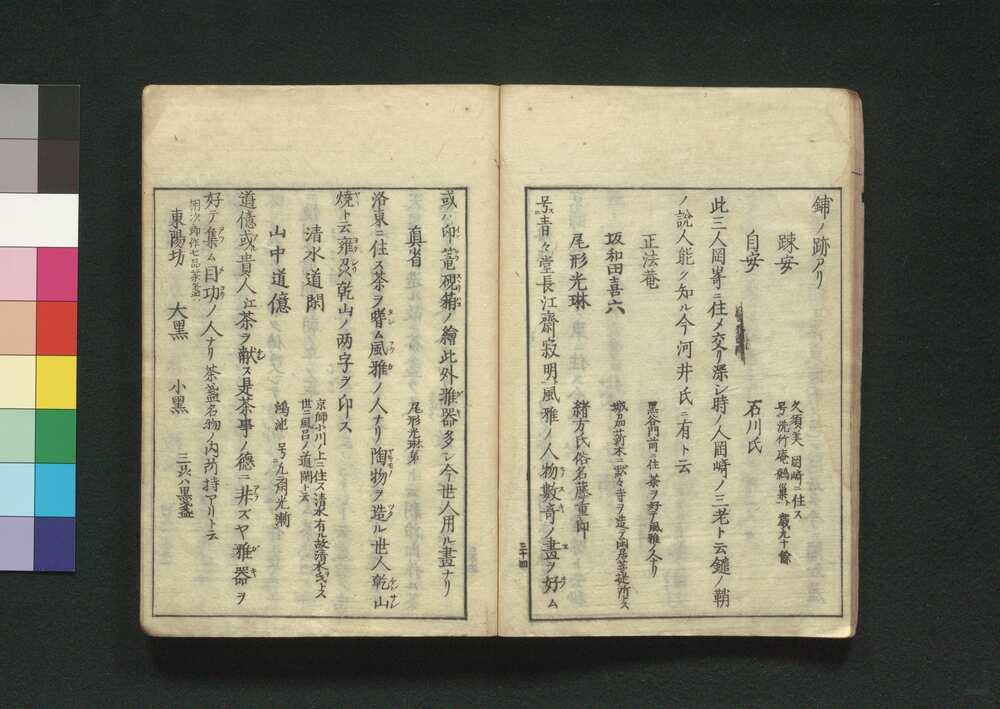 鋪ノ跡アリ
疎安
久須美 岡崎ニ住ス
号洗竹庵鶴巣ト 歳九十餘
自安
石川氏
此三人岡崎ニ住メ交リ深シ時ノ人岡崎ノ三老ト云鑓ノ鞘
ノ說人能ク知ル今河井氏ニ有ト云
正法菴
黒谷門前ニ住 茶ヲ好テ風雅ノ人ナリ
坂和田喜六
尾形光琳
緒方氏俗名藤重郎
号青々堂長江齋寂明風雅ノ人物數奇ノ畫ヲ好ム
三十四
或ハ印篭硯箱ノ繪此外雅器多シ今世人用ル畫ナリ
眞省
尾形光琳弟
洛東ニ住ス茶ヲ嗜ム風雅ノ人ナリ陶物ヲ造ル世人乾山
燒ト云雍及乾山ノ两字ヲ印ース
清水道閑
京師小川ノ上ニ住ス清水有ル故清水氏トス
世ニ風呂ノ道閑ト云
山中道億
鴻池
道億或ハ貴人江茶ヲ献ス是茶事ノ德ニ非ズヤ雅器ヲ
好テ集ム目功ノ人ナリ茶盌名物ノ内所持アリト云
東陽坊 大黒 小黒 三共ハ黒盌